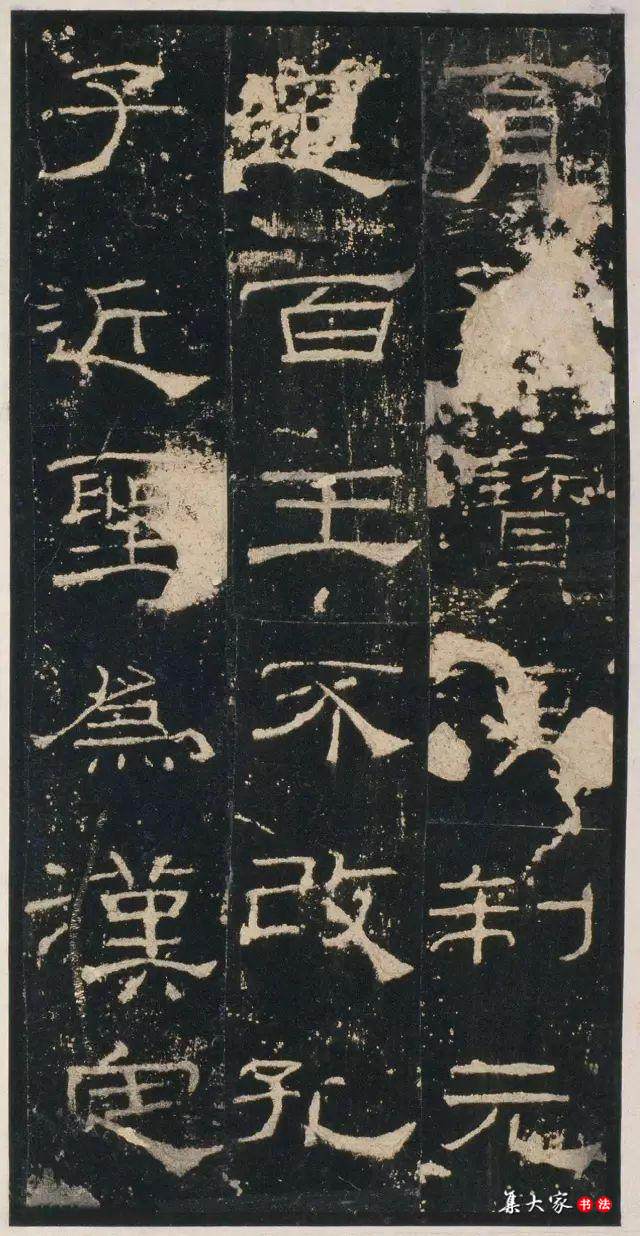 育寶制元
道百王不改孔
子近聖為漢定
集大家 书法